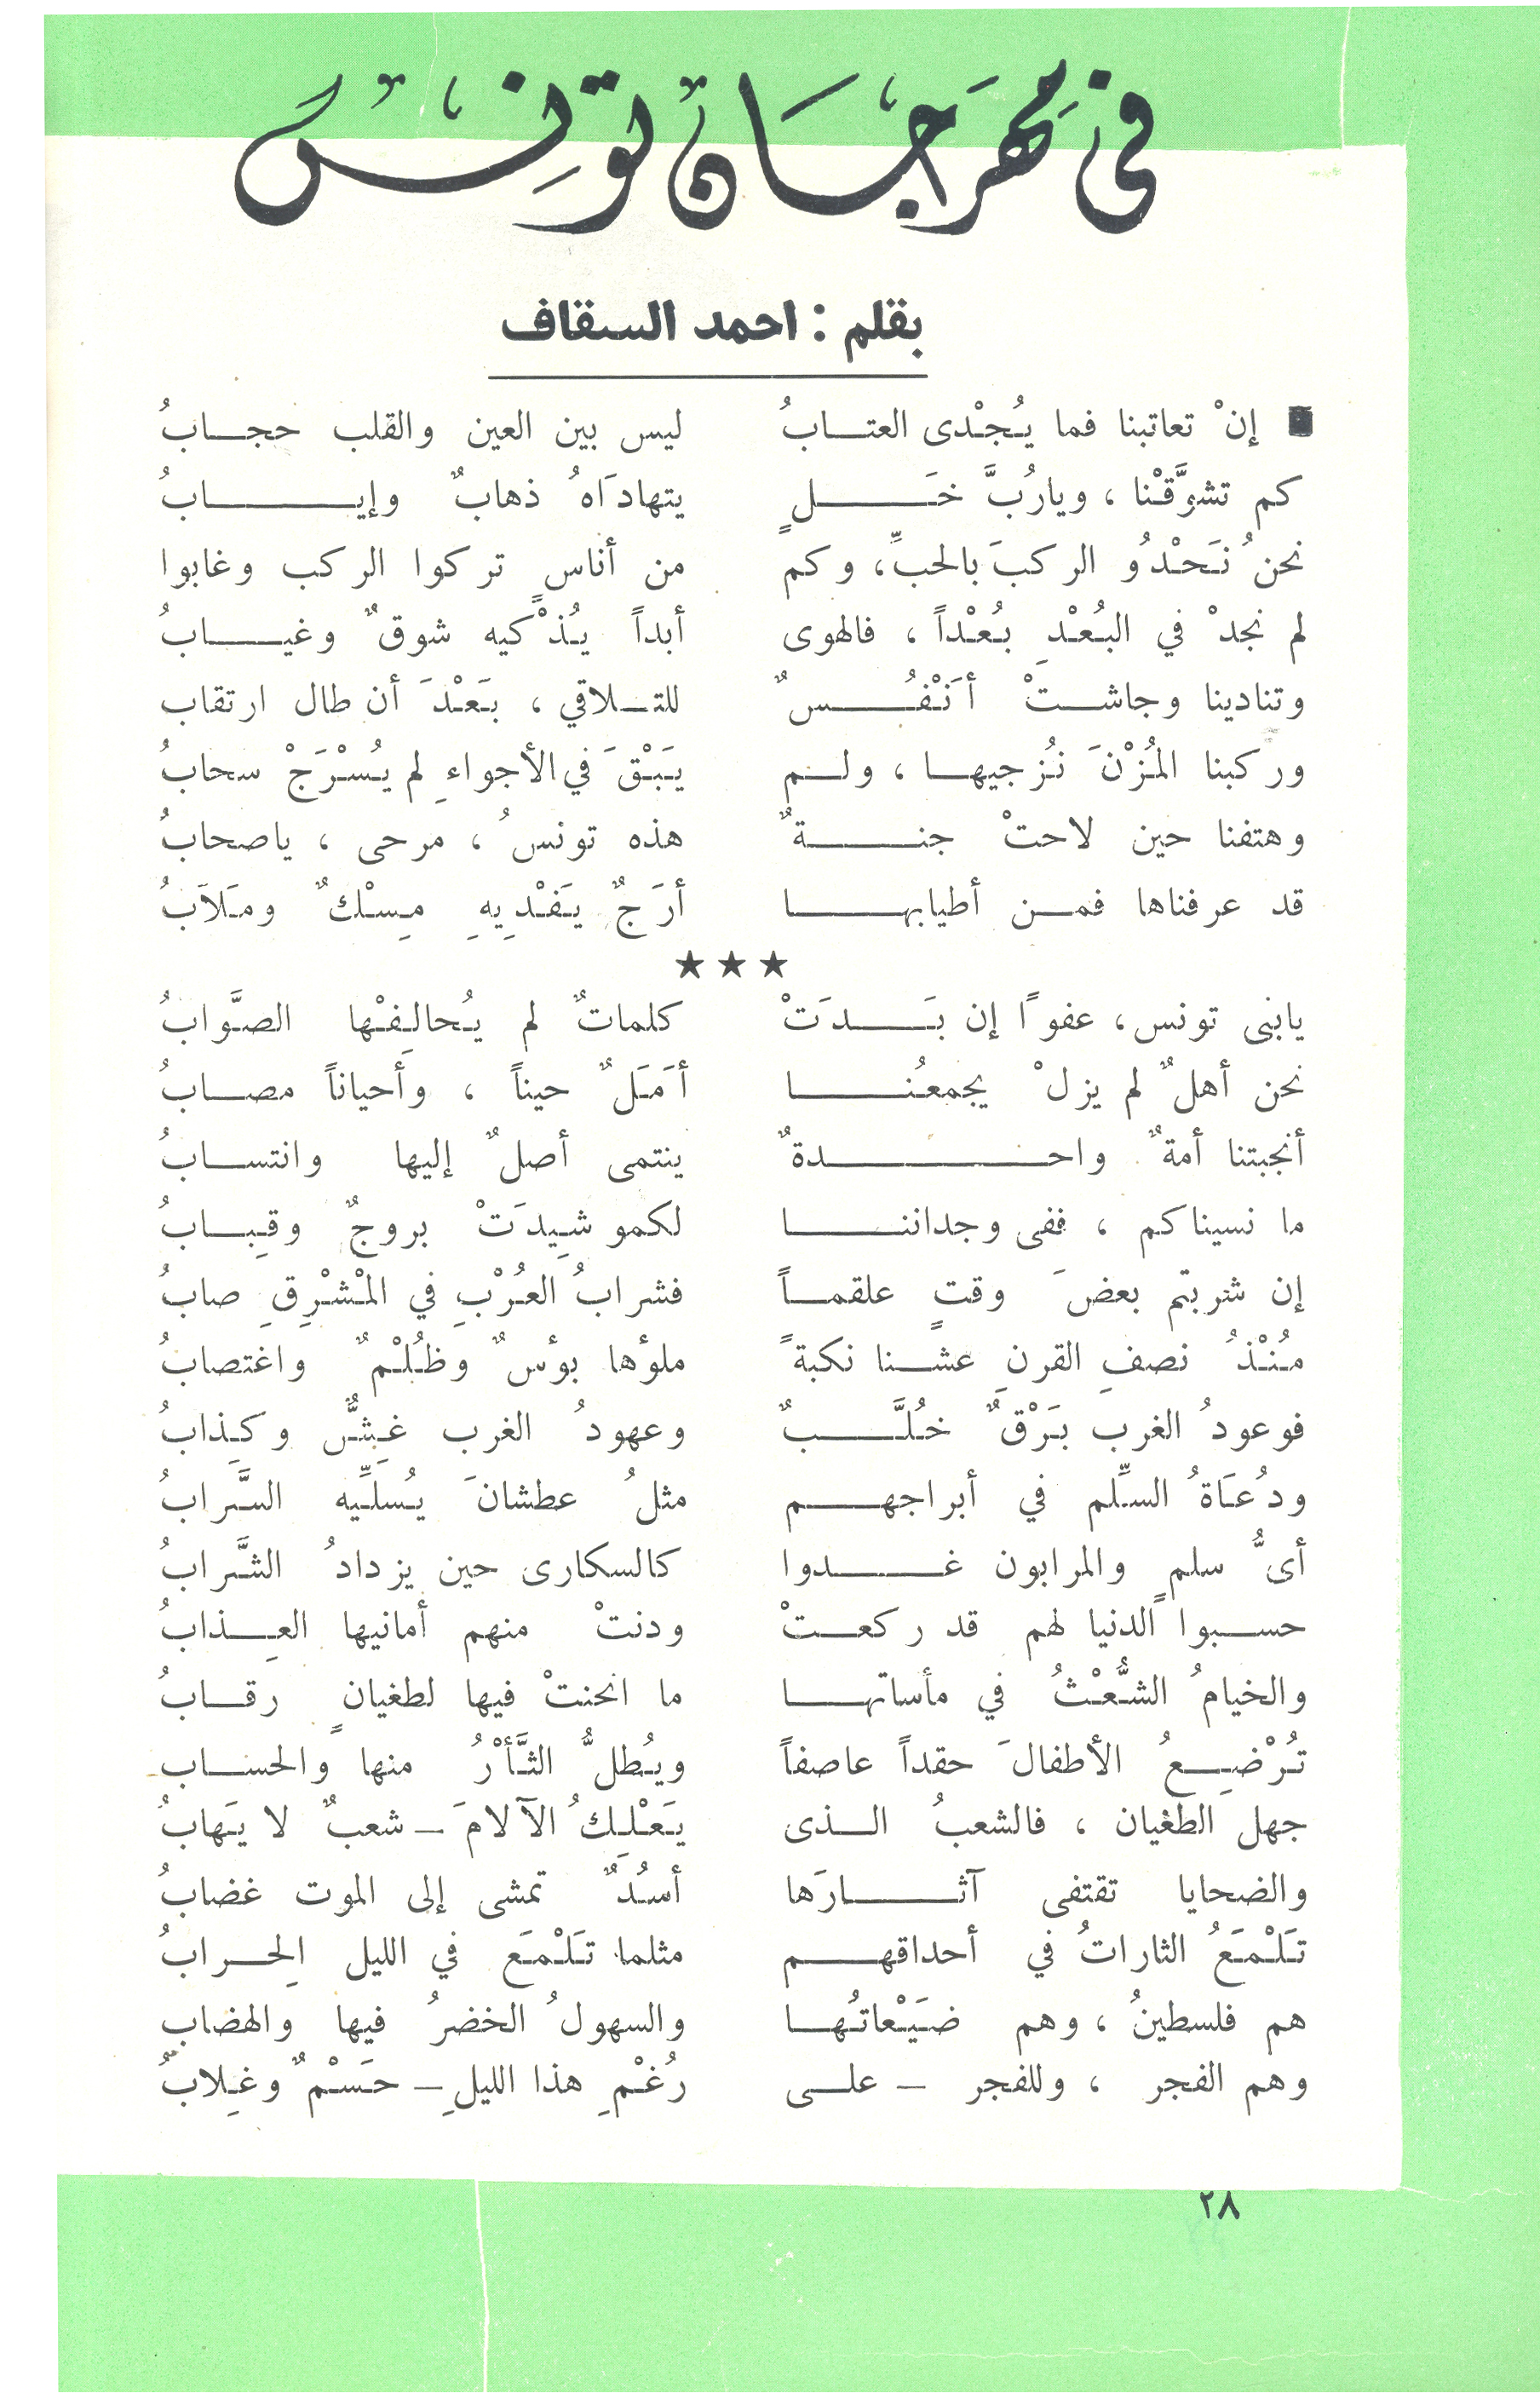 في مَهرَجَان تونِسْ
بقلم : احمد السقاف
إنْ تعاتبنا فما يُجْدى العتـابُ ليس بين العين والقلب حجـابُ
كم تشوَّقْنا ، ويارُبَّ خَــلٍ يتهادَاهُ ذهابٌ وإيــابُ
نحنُ نَحْدُو الركبَ بالحبِّ، وكم من أناسٍ تركوا الركب وغابوا
لم نجدْ في البُعْدِ بُعْداً ، فالهوى أبداً يُذْكيه شوقٌ وغيـابُ
وتنادينا وجاشـتْ أنَفُـسٌ للتـلاقي ، بَعْدَ أن طال ارتقاب
وركبنا المُزْنَ نُزجيهـا ، ولـم يَبْقَ في الأجواءِ لم يُسْرَجْ سحابُ
وهتفنا حين لاحتْ جنــةٌ هذه تونسُ ، مرحى ، ياصحابُ
قد عرفناها فمـن أطيابهــا أرَجٌ يَفْدِيهِ مِسْكٌ ومَلاَبُ
★ ★ ★
يابنى تونس، عفوًا إن بَــدَتْ كلماتٌ لم يُحالِفْها الصَّوابُ
نحن أهلٌ لم يزلْ يجمعُنــا أمَلٌ حيناً ، وأحياناً مصـابُ
أنجبتنا أمةٌ واحــدةٌ ينتمى أصلٌ إليها وانتسـابُ
ما نسيناكم ، ففى وجداننــا لكمو شيِدَتْ بروجٌ وقِبـابُ
إن شربتم بعضَ وقتٍ علقمـاً فشرابُ العُرْبِ في المْشْرِقِ صابُ
مُنْذُ نصفِ القرنِ عشـنا نكبةً ملؤها بؤسٌ وظُلْمٌ واغتصابُ
فوعودُ الغرب بَرْقٌ خُلَّـبٌ وعهودُ الغرب غِشٌّ وكِذابُ
ودُعَاةُ السِّلم في أبراجهـم مثلُ عطشانَ يُسلِّيه السَّرابُ
أىُّ سلمٍ والمرابون غــدوا كالسكارى حين يزدادُ الشَّرابُ
حسـبوا الدنيا لهم قد ركعـتْ ودنتْ منهم أمانيها العِـذابُ
والخيامُ الشُّعْثُ في مأساتهـا ما انحنتْ فيها لطغيانٍ رقـابُ
تُرْضـعُ الأطفالَ حقداً عاصفاً ويُطلُّ الثَّأْرُ منها والحسـاب
جهل الطغيان ، فالشعبُ الـذى يَعْلِكُ الآلامَ ـ شعبٌ لا يَهابُ
والضحايا تقتفى آثــارَها أسُدٌ تمشى إلى الموت غضابُ
تَلْمَعُ الثاراتُ في أحداقهـم مثلما تَلْمَع في الليل الِحـرابُ
هم فلسطينُ ، وهم ضَيْعاتُهـا والسهولُ الخضرُ فيها والهضاب
وهم الفجر ، وللفجر ـ علـى رُغْمِ هذا الليلِ ـ حَسْمٌ وغِلابُ
٢٨